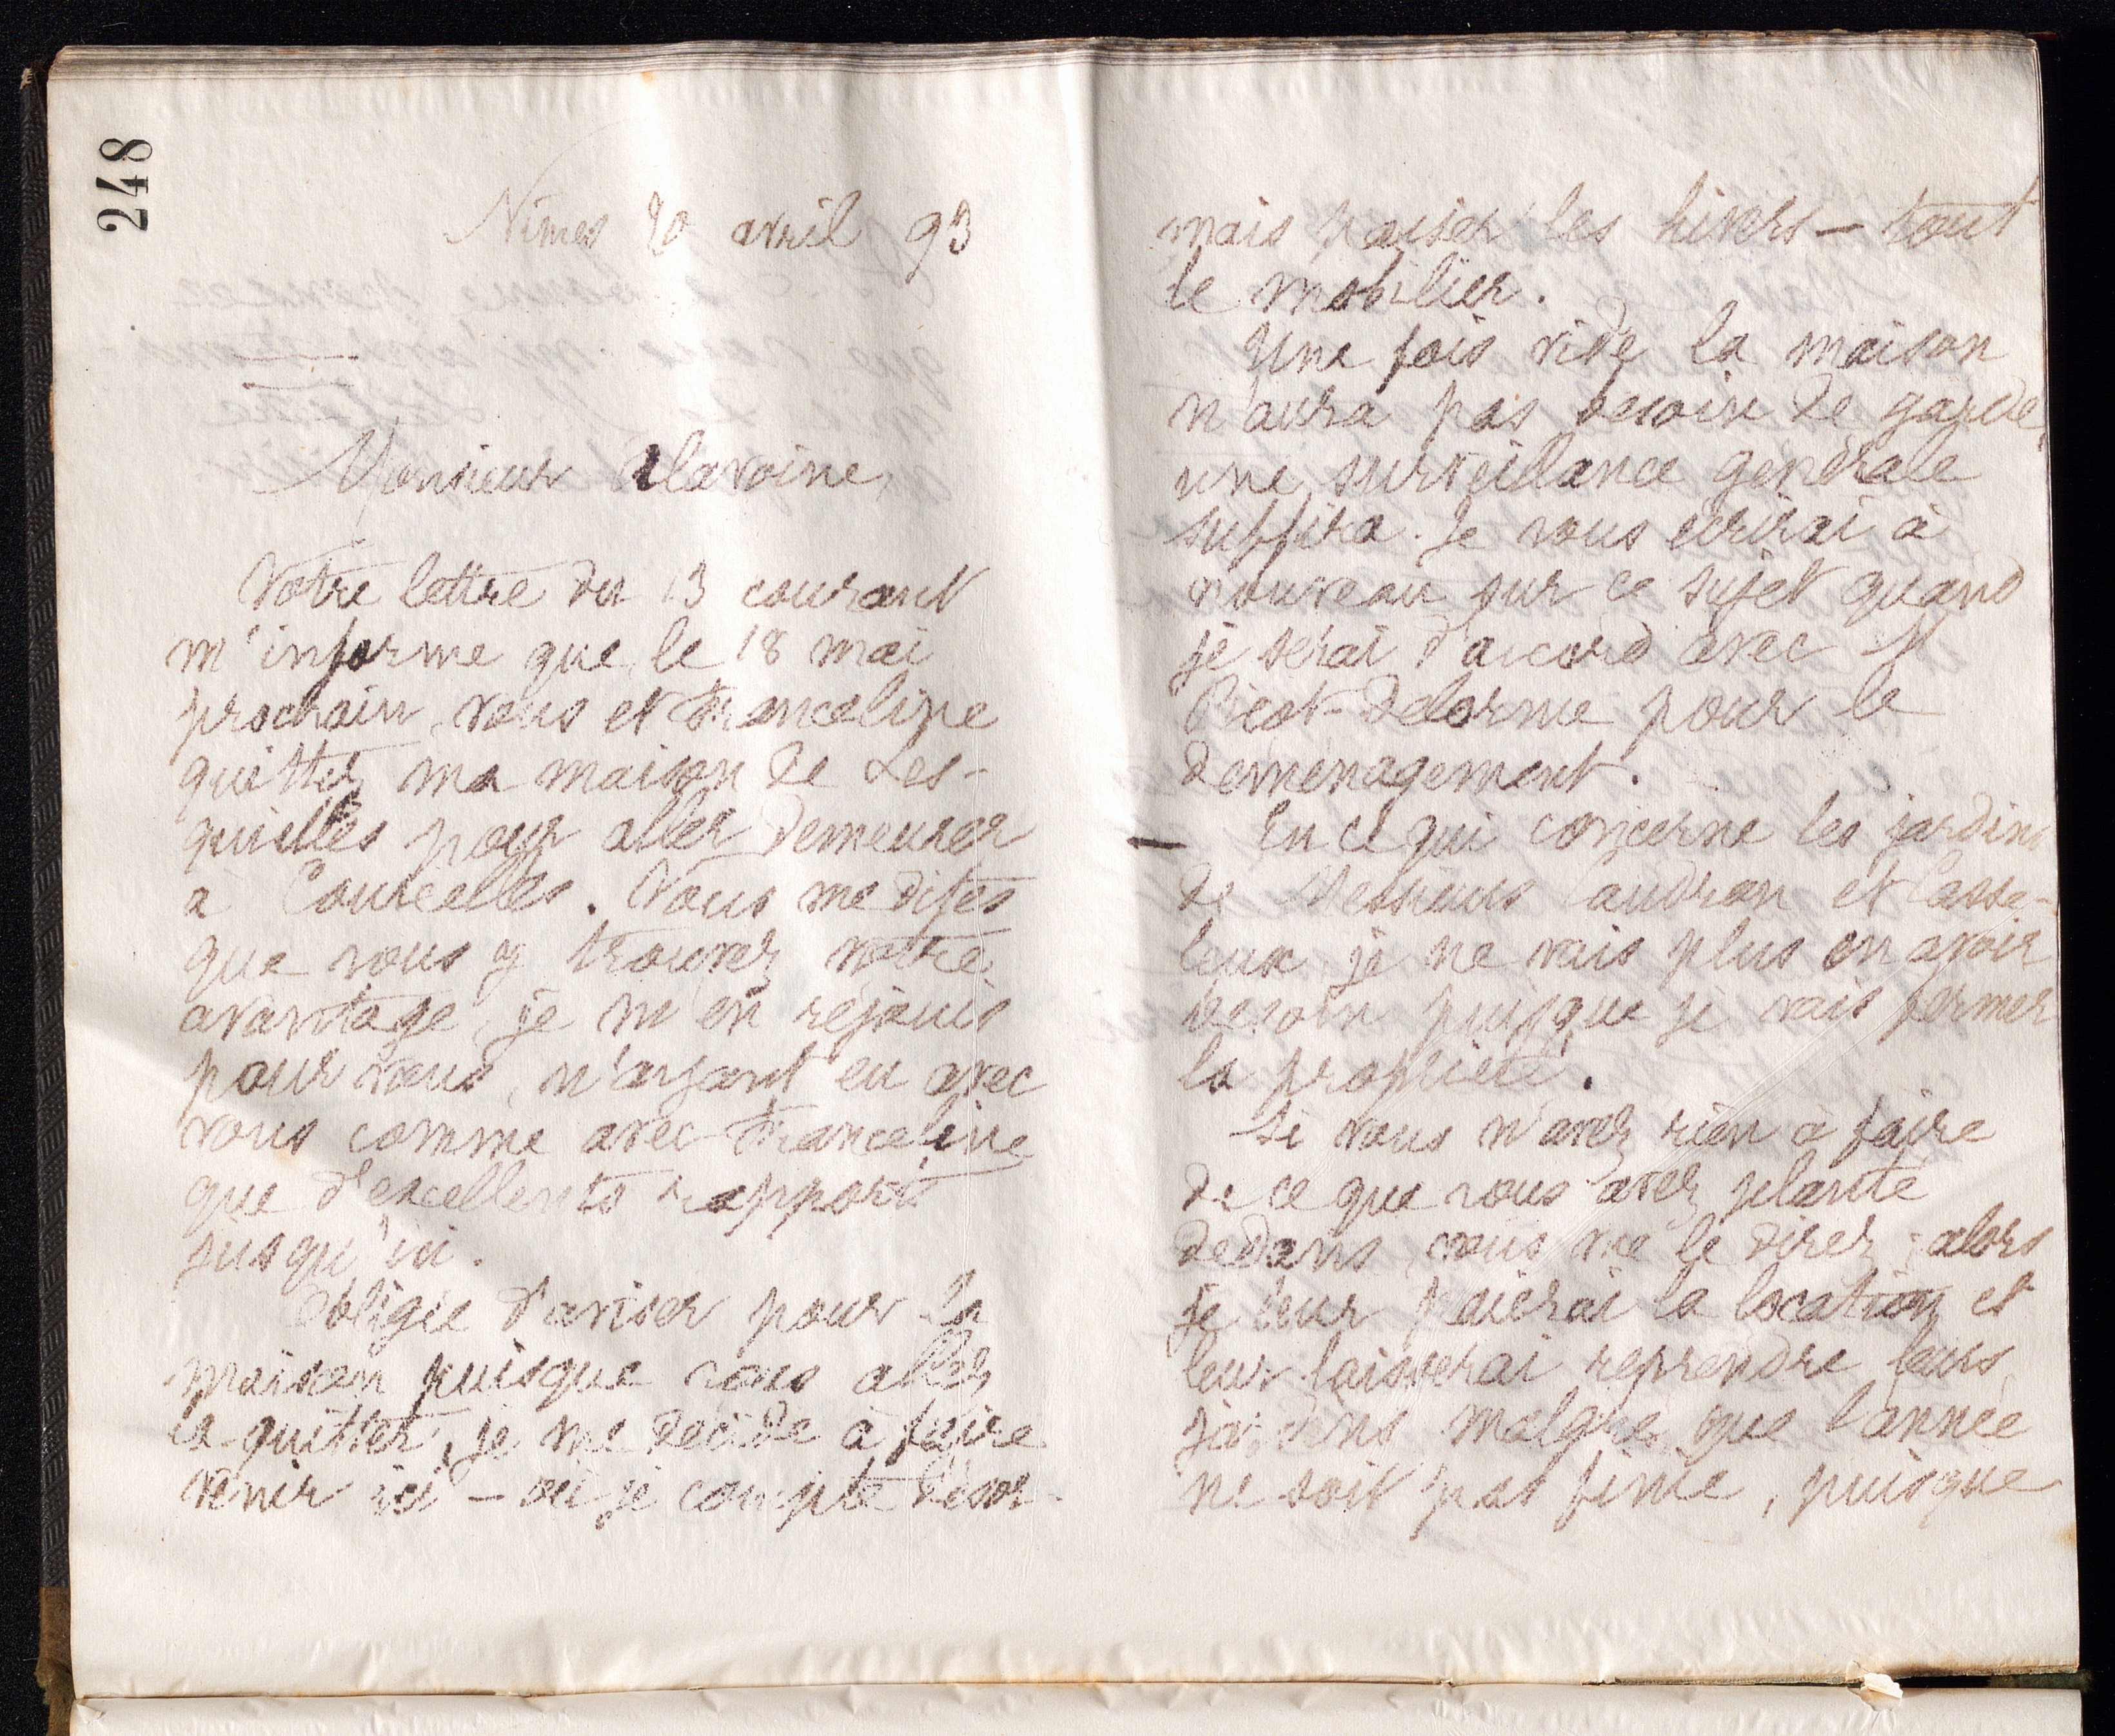 248
Nîmes 20 avril 93
Monsieur Alavoine,
Votre lettre du 13 courant
m'informe que, le 18 mai
prochain, vous et Franceline
quittez ma maison de Les-
quielles pour aller demeurer
à Courcelles. Vous me dites
que vous y trouvez votre
avantage, je m'en réjouis
pour vous, n'ayant eu avec
vous comme avec Franceline
que d'excellents rapports
jusqu'ici.
Obligée d'aviser pour la
maison puisque vous allez
la quitter, je me décide à faire
venir ici – où je compte désor-
mais passer les hivers – tout
le mobilier.
Une fois vide la maison
n'aura pas besoin de garde,
une surveillance generale
suffira. Je vous ecrirai à
nouveau sur ce sujet quand
je serai d'accord avec M
Picot-Delorme pour le
demenagement.
– En ce qui concerne les jardins
de Messieurs Caudron et Casse-
leux, je ne vais plus en avoir
besoin puisque je vais fermer
la propriété.
Si vous n'avez rien à faire
de ce que vous avez planté
dedans, vous me le direz : alors
je leur paierai la location et
leur laisserai reprendre leurs
jardins malgré que l'année
ne soit pas finie, puisque